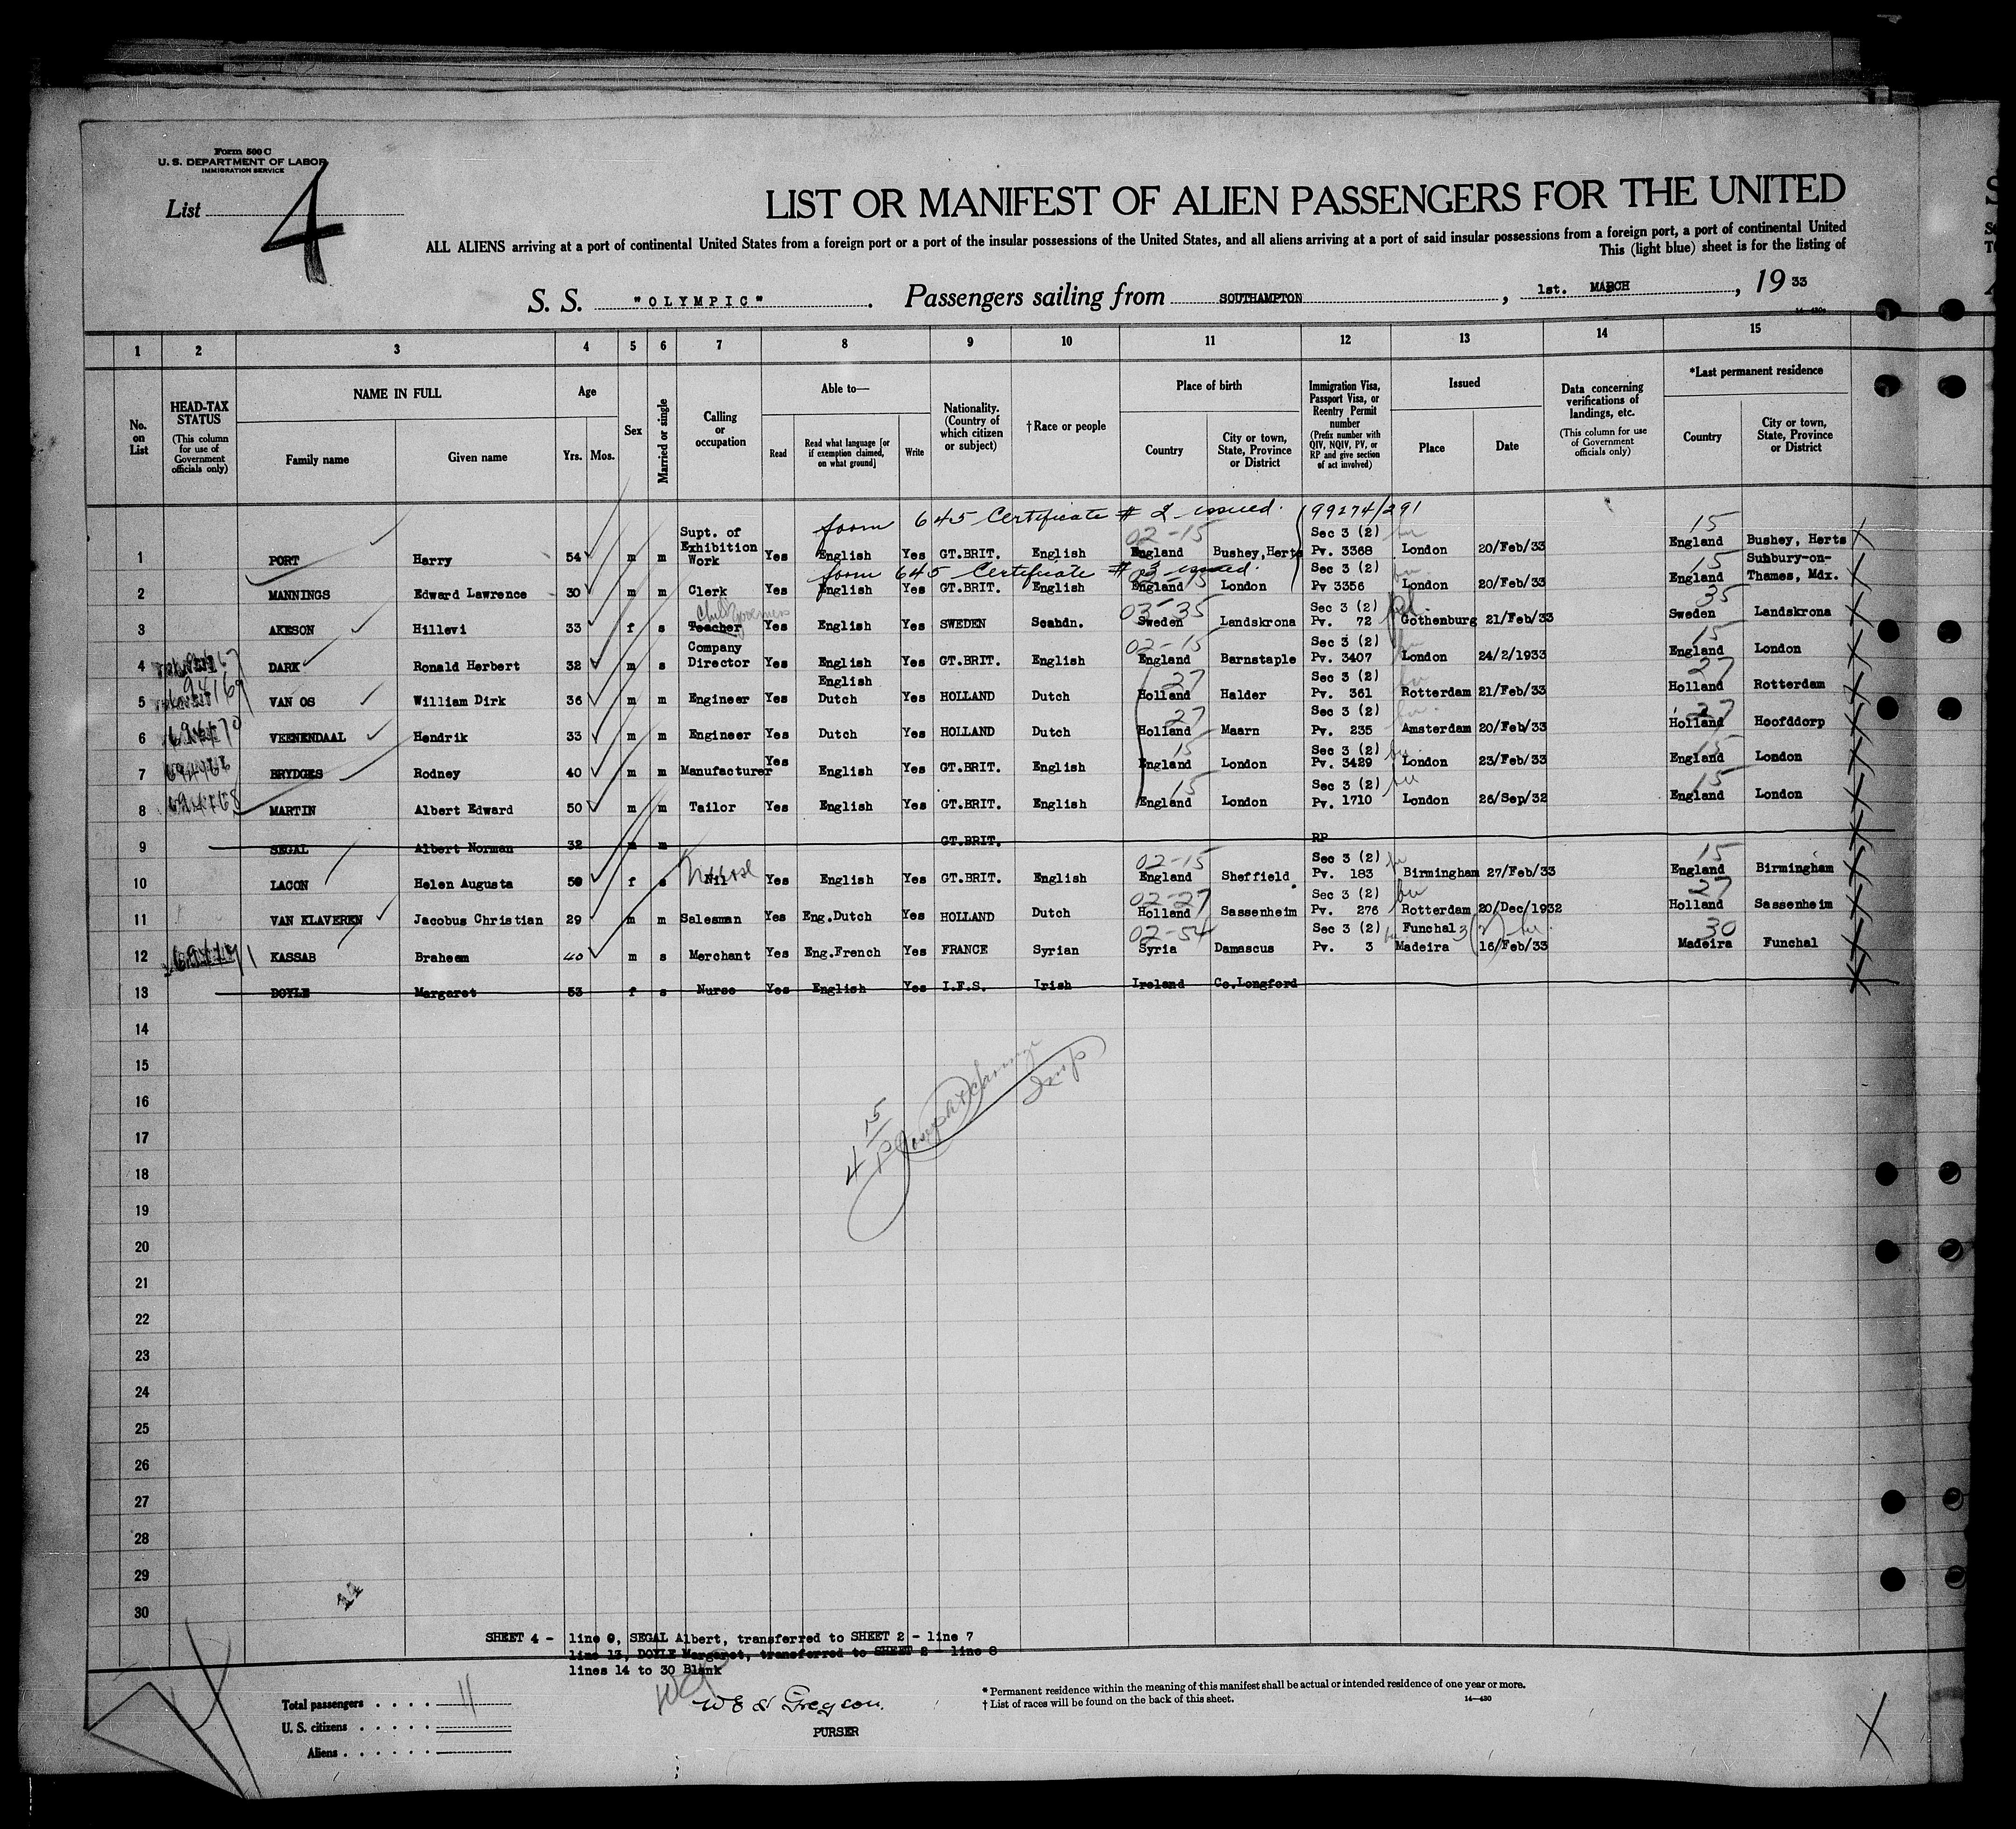 Form 500 C
U. S. DEPARTMENT OF LABOR
IMMIGRATION SERVICE
List 4
LIST OR MANIFEST OF ALIEN PASSENGERS FOR THE UNITED
ALL ALIENS arriving at a port of continental United States from a foreign port or a port of the insular possessions of the United States, and all aliens arriving at a port of said insular possessions from a foreign port, a port of continental United
This (light blue) sheet is for the listing of
S. S. "OLYMPIC". Passengers sailing from SOUTHAMPTON, 1st. MARCH, 19 33
1 2 3 4 5 6 7 8 9 10 11 12 13 14 15
No. on List
HEAD-TAX STATUS (This column for use of Government officials only)
NAME IN FULL Family name Given name
Age Yrs. Mos.
Sex
Married or single
Calling or occupation
Able to— Read Read what language [or if exemption claimed, on what ground] Write
Nationality. (Country of which citizen or subject)
†Race or people
Place of birth Country City or town, State, Province or District
Immigration Visa, Passport Visa, or Reentry Permit number (Prefix number with QIV, NQIV, PV, or RP and give section of act involved)
Issued Place Date
Data concerning verifications of landings, etc. (This column for use of Government officials only)
*Last permanent residence Country City or town, State, Province or District
form 645 Certificate # 2 issued. 99274/291
1 PORT Harry 54 m m Supt. of Exhibition Work Yes English Yes GT.BRIT. English 02-15 England Bushey, Herts Sec 3 (2) Pv. 3368 London 20/Feb/33 15 England Bushey, Herts
form 645 Certificate # 3 issued.
2 MANNINGS Edward Lawrence 30 m m Clerk Yes English Yes GT.BRIT. English 02-15 England London Sec 3 (2) Pv 3356 London 20/Feb/33 15 England Sunbury-on-Thames, Mdx.
3 AKESON Hillevi 33 f s Teacher Yes English Yes SWEDEN Scahdn. 03-35 Sweden Landskrona Sec 3 (2) Pv. 72 Gothenburg 21/Feb/33 35 Sweden Landskrona
4 DARK Ronald Herbert 32 m s Company Director Yes English Yes GT.BRIT. English 02-15 England Barnstaple Sec 3 (2) Pv. 3407 London 24/2/1933 15 England London
5 VAN OS William Dirk 36 m m Engineer Yes English Dutch Yes HOLLAND Dutch 27 Holland Halder Sec 3 (2) Pv. 361 Rotterdam 21/Feb/33 27 Holland Rotterdam
6 VEENENDAAL Hendrik 33 m m Engineer Yes Dutch Yes HOLLAND Dutch 27 Holland Maarn Sec 3 (2) Pv. 235 Amsterdam 20/Feb/33 27 Holland Hoofddorp
7 BRYDGES Rodney 40 m m Manufacturer Yes English Yes GT.BRIT. English 15 England London Sec 3 (2) Pv. 3429 London 23/Feb/33 15 England London
8 MARTIN Albert Edward 50 m m Tailor Yes English Yes GT.BRIT. English 15 England London Sec 3 (2) Pv. 1710 London 26/Sep/32 15 England London
9 SEGAL Albert Norman 32 m m GT.BRIT. RP
10 LACON Helen Augusta 50 f s Nil Yes English Yes GT.BRIT. English 02-15 England Sheffield Sec 3 (2) Pv. 183 Birmingham 27/Feb/33 15 England Birmingham
11 VAN KLAVEREN Jacobus Christian 29 m m Salesman Yes Eng.Dutch Yes HOLLAND Dutch 02-27 Holland Sassenheim Sec 3 (2) Pv. 276 Rotterdam 20/Dec/1932 27 Holland Sassenheim
12 KASSAB Braheem 40 m s Merchant Yes Eng.French Yes FRANCE Syrian 02-54 Syria Damascus Sec 3 (2) Pv. 3 Funchal Madeira 16/Feb/33 30 Madeira Funchal
13 DOYLE Margaret 53 f s Nurse Yes English Yes I.F.S. Irish Ireland Co.Longford
14
15
16
17
18
19
20
21
22
23
24
25
26
27
28
29
30
SHEET 4 - line 9, SEGAL Albert, transferred to SHEET 2 - line 7
line 13, DOYLE Margaret, transferred to SHEET 2 - line 8
lines 14 to 30 Blank
Total passengers 11
U. S. citizens
Aliens
W E S Gregson.
PURSER
* Permanent residence within the meaning of this manifest shall be actual or intended residence of one year or more.
† List of races will be found on the back of this sheet. 14—430